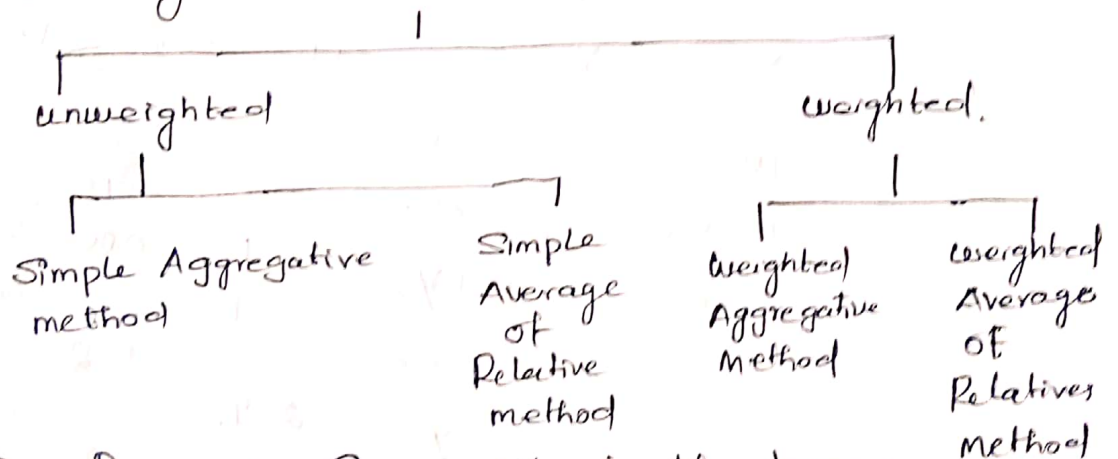 unweighted
weighted.
Simple Aggregative
method
Simple
Average
of
Relative
method
weighted
Aggregative
Method
weighted
Average
of
Relatives
Method